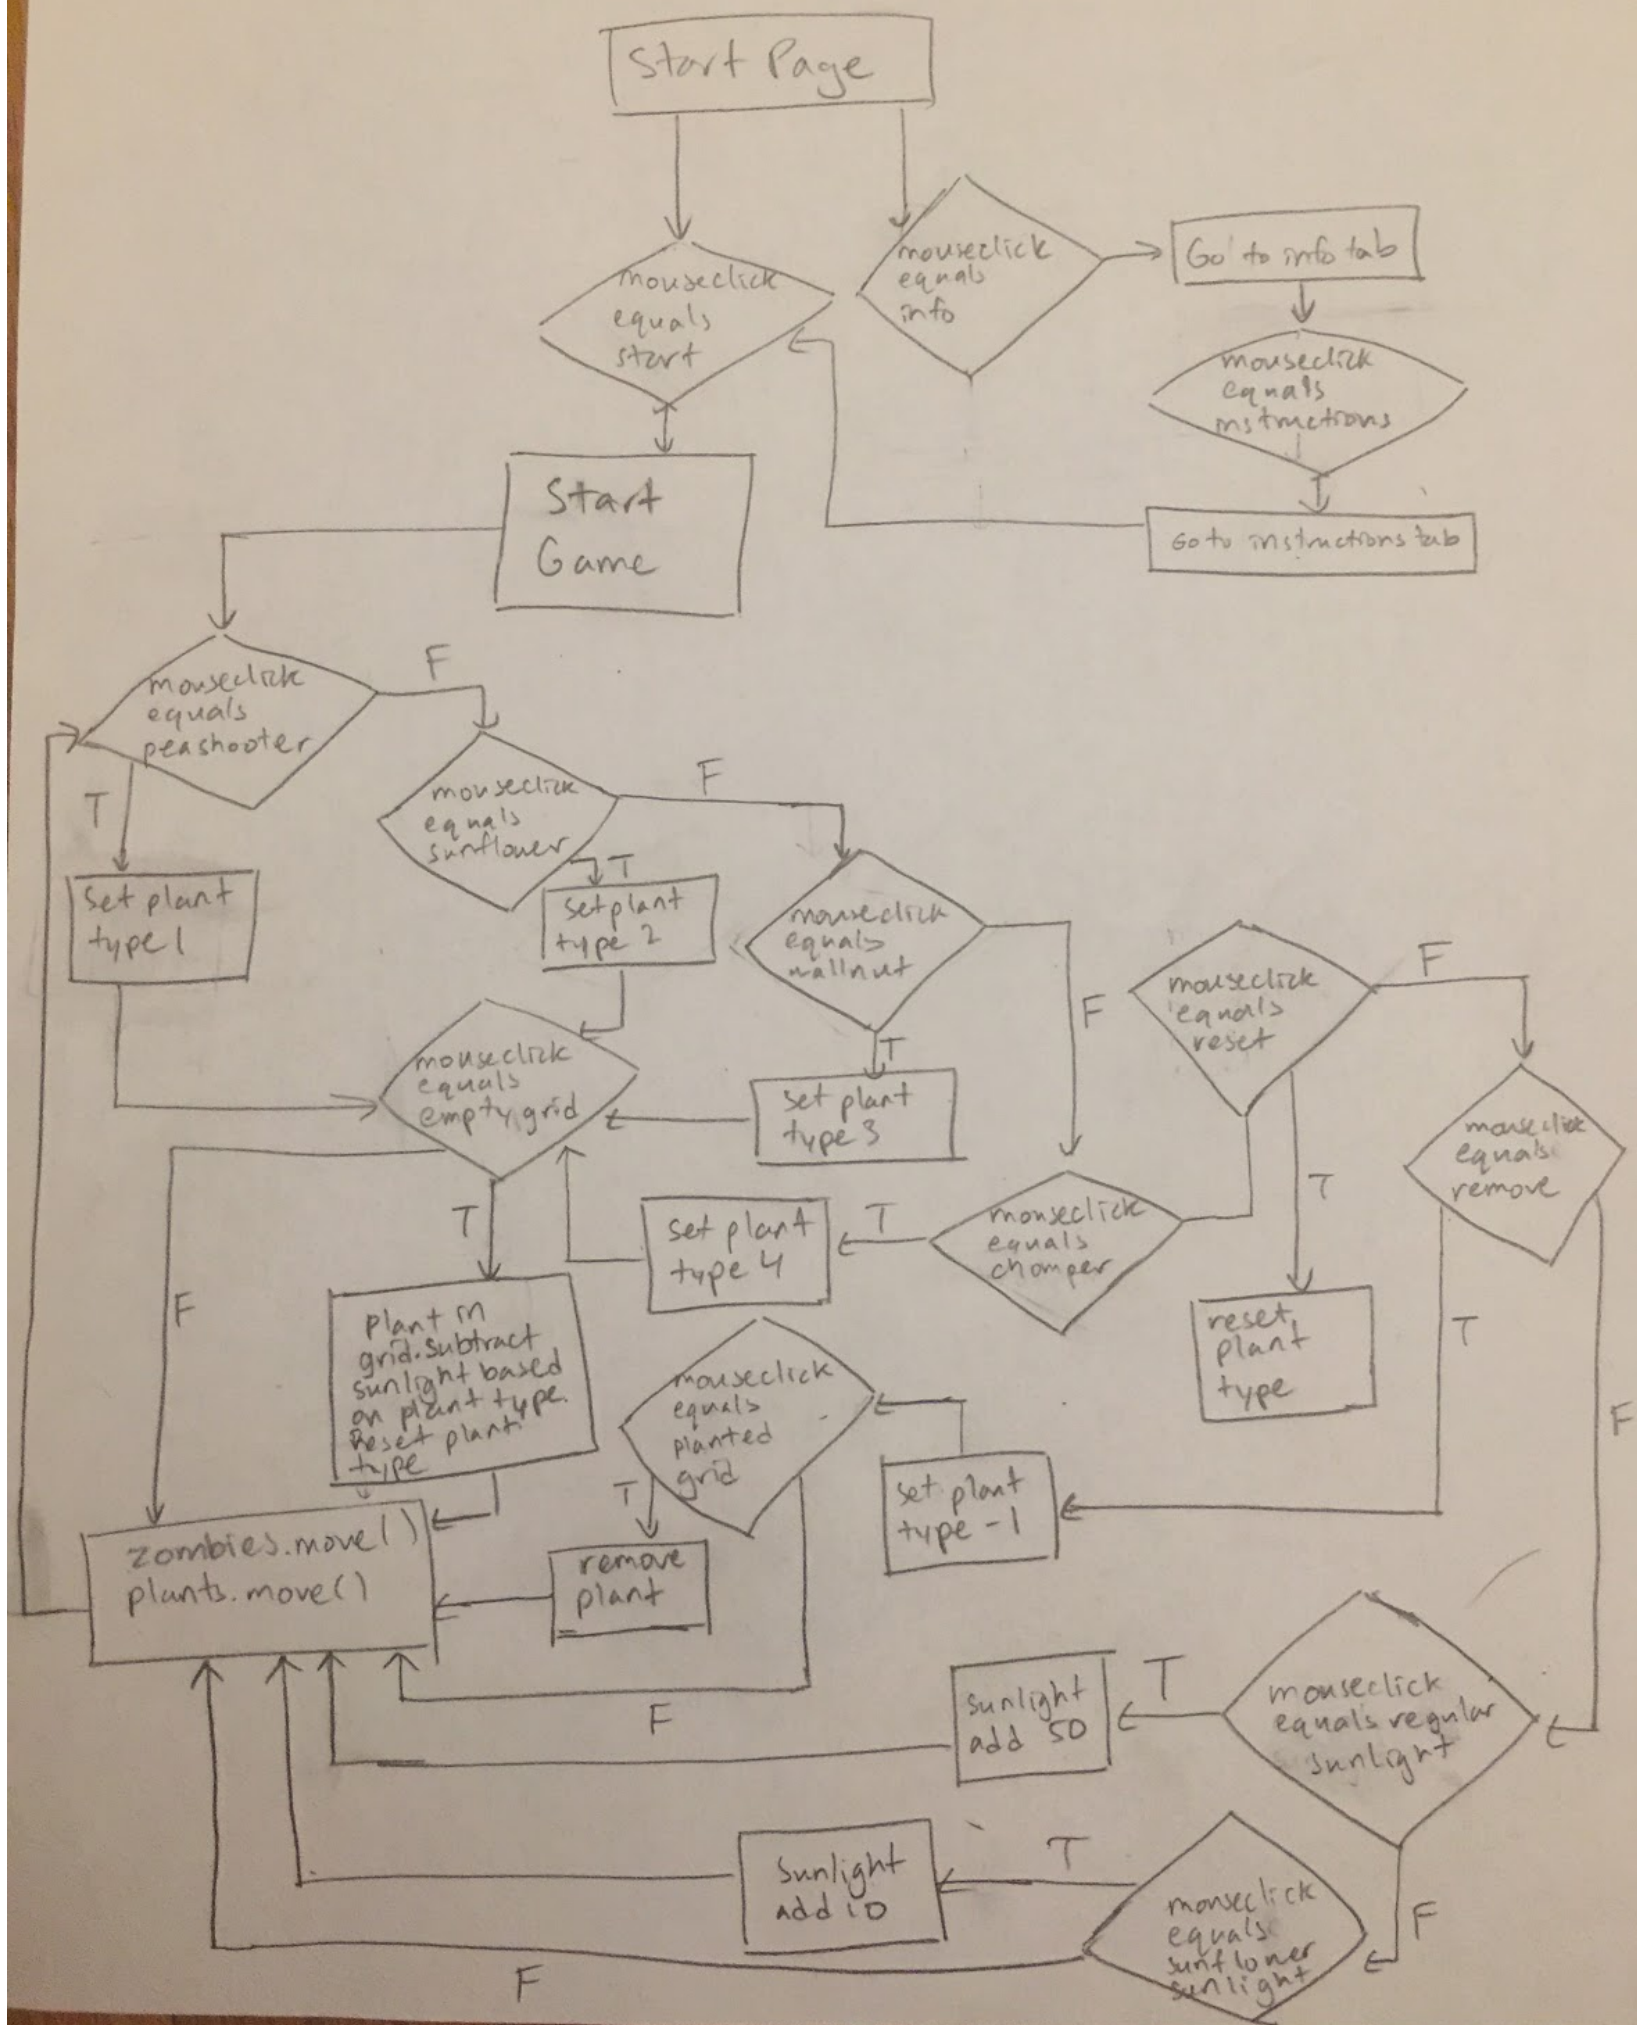 Start Page
mouseclick
equals
start
mouseclick
equals
info
Go to info tab
mouseclick
equals
instructions
Go to instructions tab
Start
Game
mouseclick
equals
peashooter
F
T
set plant
type 1
mouseclick
equals
sunflower
F
T
set plant
type 2
mouseclick
equals
wallnut
F
T
set plant
type 3
mouseclick
equals
empty grid
T
F
mouseclick
equals
chomper
T
set plant
type 4
mouseclick
equals
reset
F
T
reset
plant
type
mouseclick
equals
remove
T
F
plant in
grid. subtract
sunlight based
on plant type.
Reset plant
type
mouseclick
equals
planted
grid
T
F
set plant
type -1
remove
plant
zombies.move()
plants.move()
mouseclick
equals regular
sunlight
T
F
sunlight
add 50
mouseclick
equals
sunflower
sunlight
T
F
sunlight
add 10